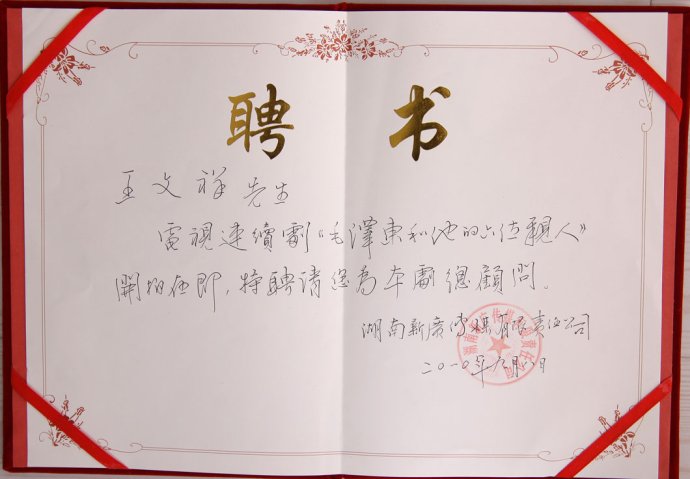 聘书
王文祥先生
電視連續劇《毛澤東和他的六位親人》
開拍在即，特聘請您為本劇總顧問。
湖南新廣傳媒有限責任公司
二〇一〇年八月八日